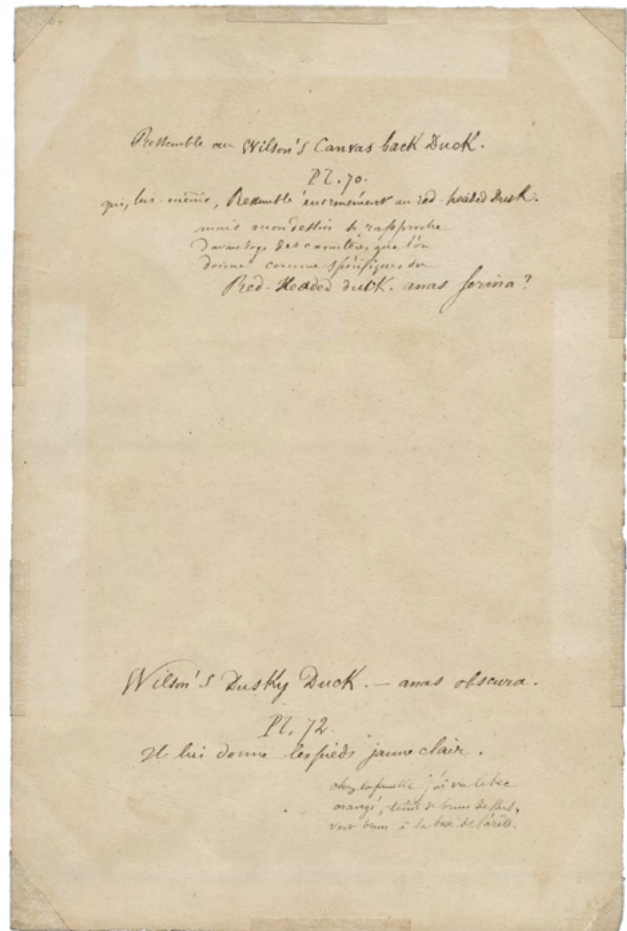 Ressemble au Wilson's Canvas back Duck.
Pl. 70.
qui, lui-même, Ressemble énormément au red-headed Duck.
mais mon dessin se rapproche
Davantage des caractères que l'on
donne comme spécifiques du
Red-Headed duck. anas ferina?
Wilson's Dusky Duck. — anas obscura.
Pl. 72
Il lui donne les pieds jaune clair.
chez la femelle j'ai vu le bec
orangé, teinté de brun dessus,
vert brun à la base de l'arête.